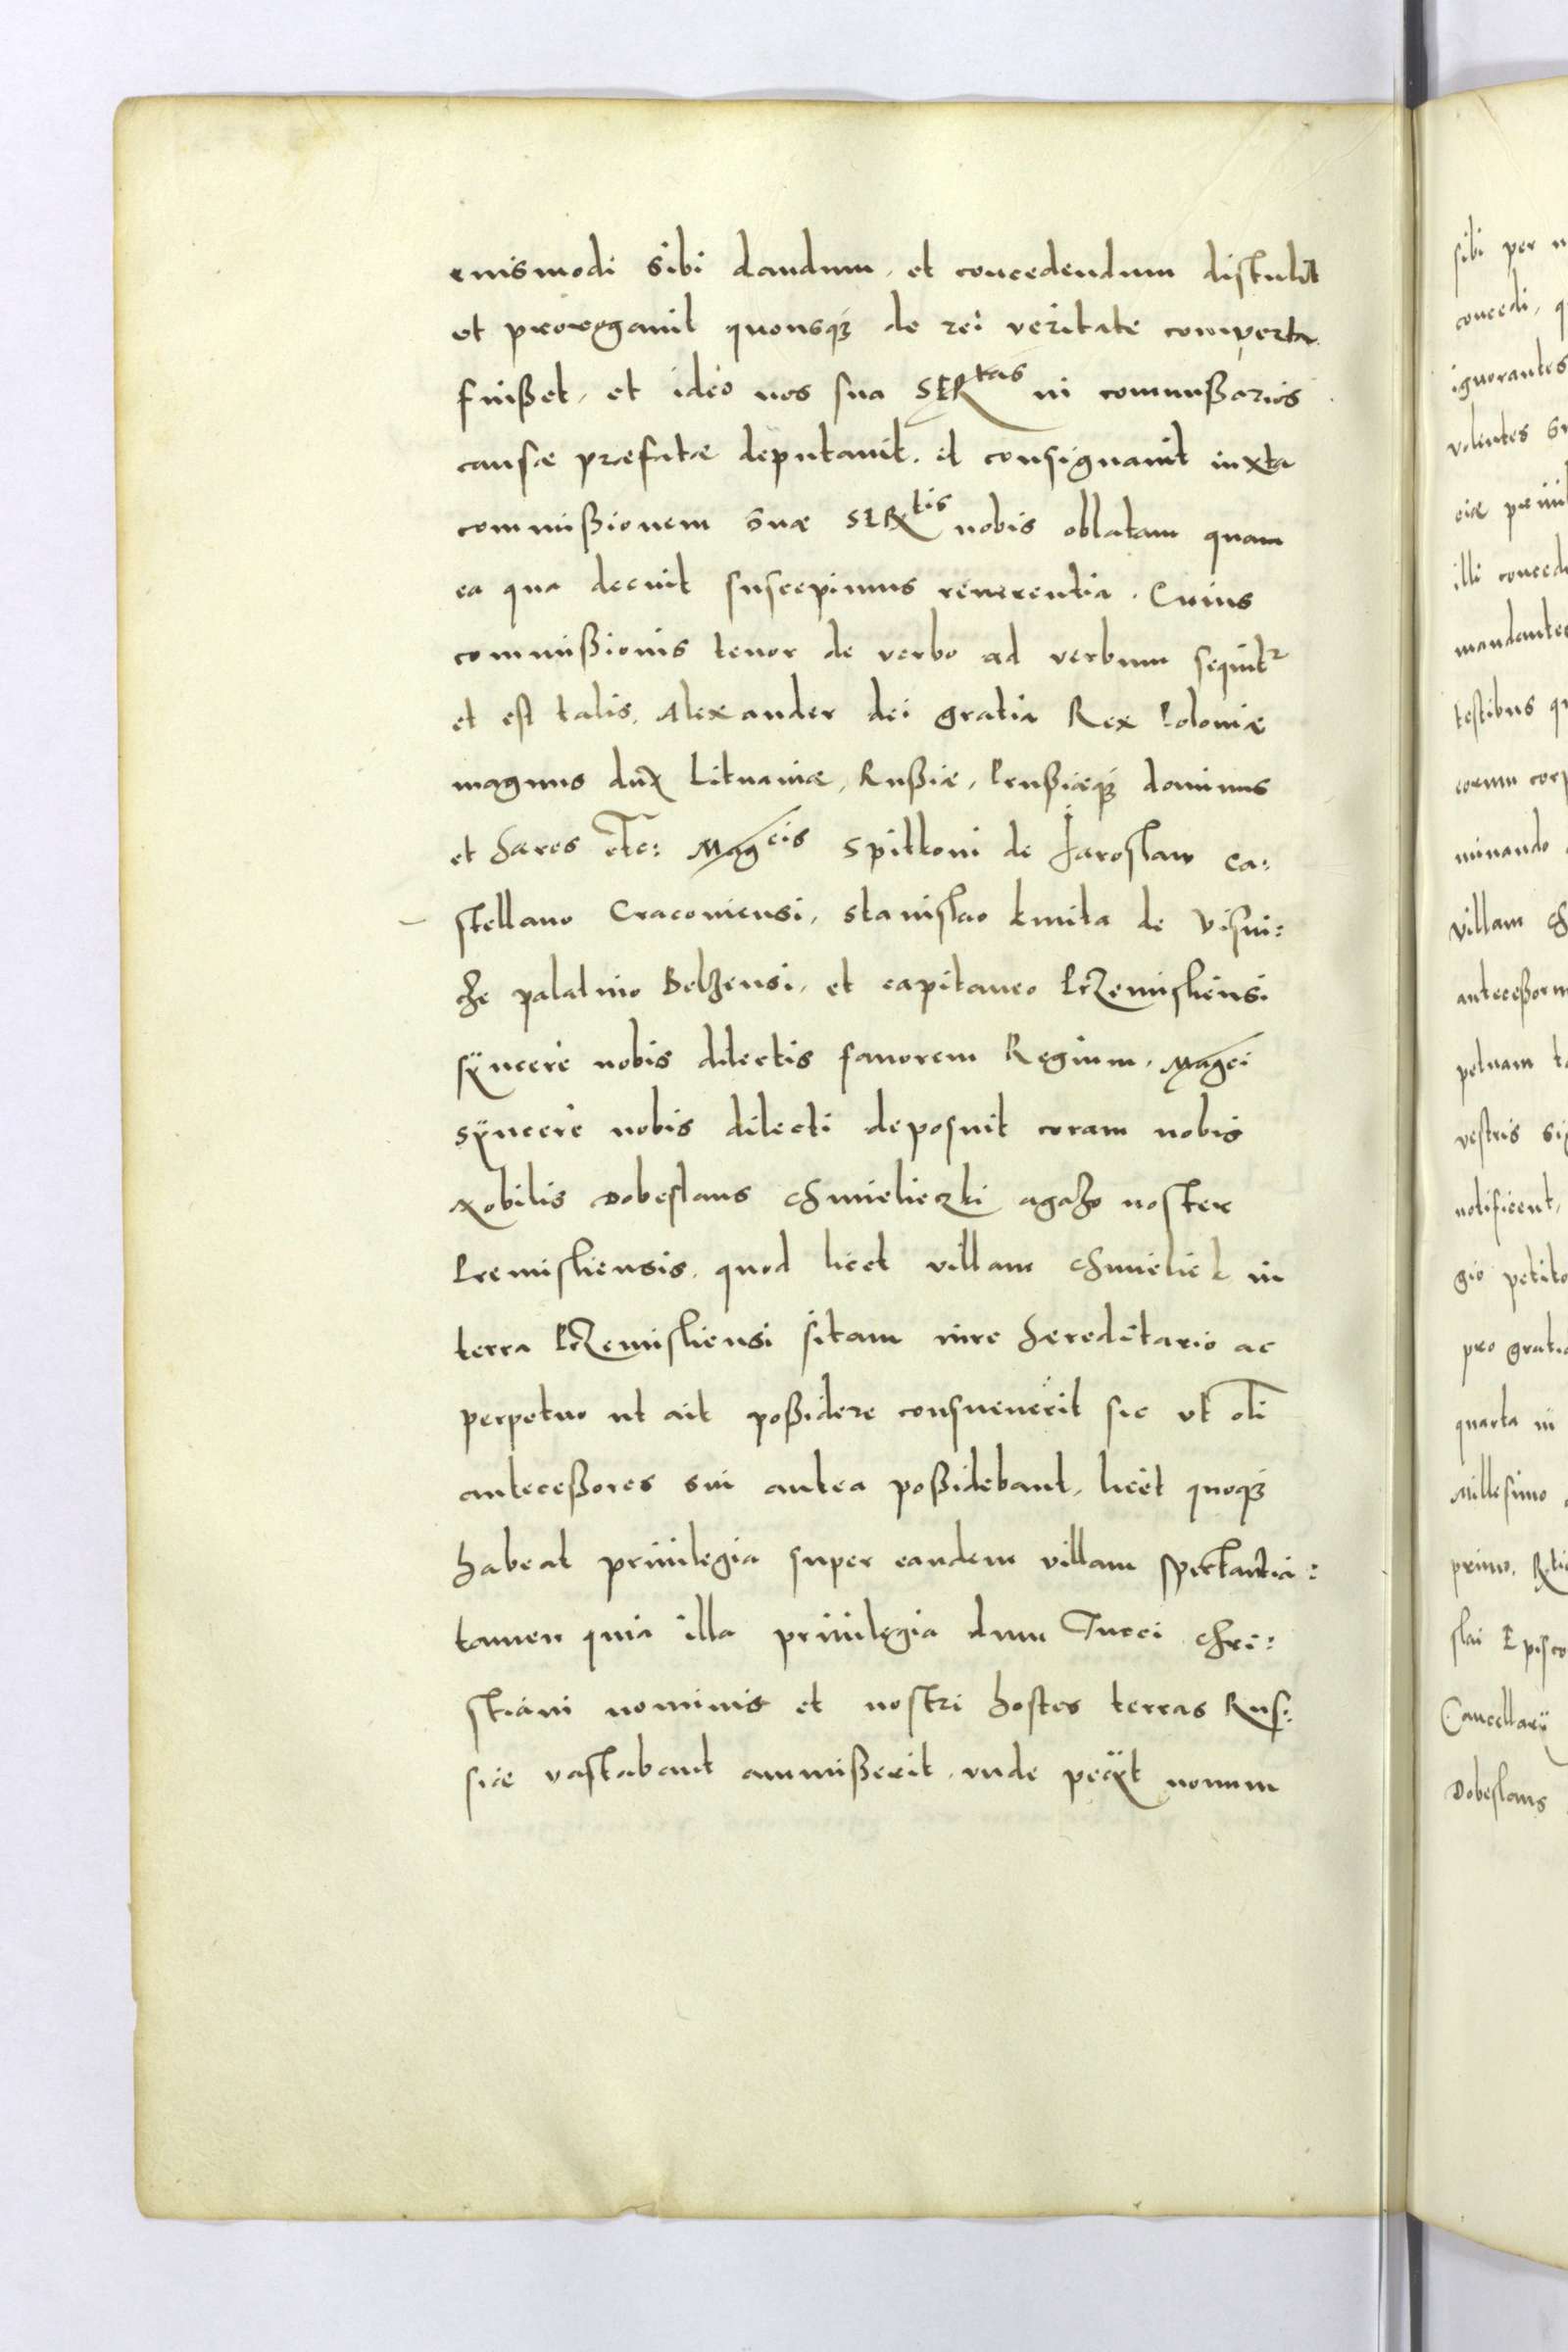 euismodi sibi dandum, et concedendum distulit
et proroggauit quousq₃ de rei veritate comperta
fuißet, et ideo nos sua SERtas in commißarios
causæ præfatæ deputauit, et consignauit iuxta
commißionem suæ SERtis nobis oblatam quam
ea qua decuit suscepimus reuerentia. Cuius
commißionis tenor de verbo ad verbum sequit2
et est talis. Alexander dei gratia Rex Poloniæ
magnus dux Lituaniæ, Rußiæ, Prußiæq₃ dominus
et hæres etc: Magcis Spitkoni de Jaroslaw ca:
stellano Cracouiensi, Stanislao kmita de Visni:
cze palatino Belzensi, et capitaneo Przemisliensi
syncere nobis dilectis fauorem Regium. Magci
syncere nobis dilecti deposuit coram nobis
Nobilis Dobeslaus Chmieliczki agazo noster
Premisliensis, quod licet villam Chmieliek in
terra Przemisliensi sitam iure hæreditario ac
perpetuo ut ait poßidere consueuerit sic ut oli
anteceßores sui antea poßidebant, licet quoq₃
habeat priuilegia super eandem villam spectantia:
tamen quia illa priuilegia dum Turci chri:
stiani nominis et nostri hostes terras Rus:
siæ vastabant ammißerit, unde petÿt nouum
sibi per
concedi,
ignorantes
volentes
illi
testibus
eorum
minando
villam
petuam
vestris
notificent,
gio petito
pro gratia
quarta in
Millesimo
primo.
slai Episco
Cancellarÿ
Dobeslaus